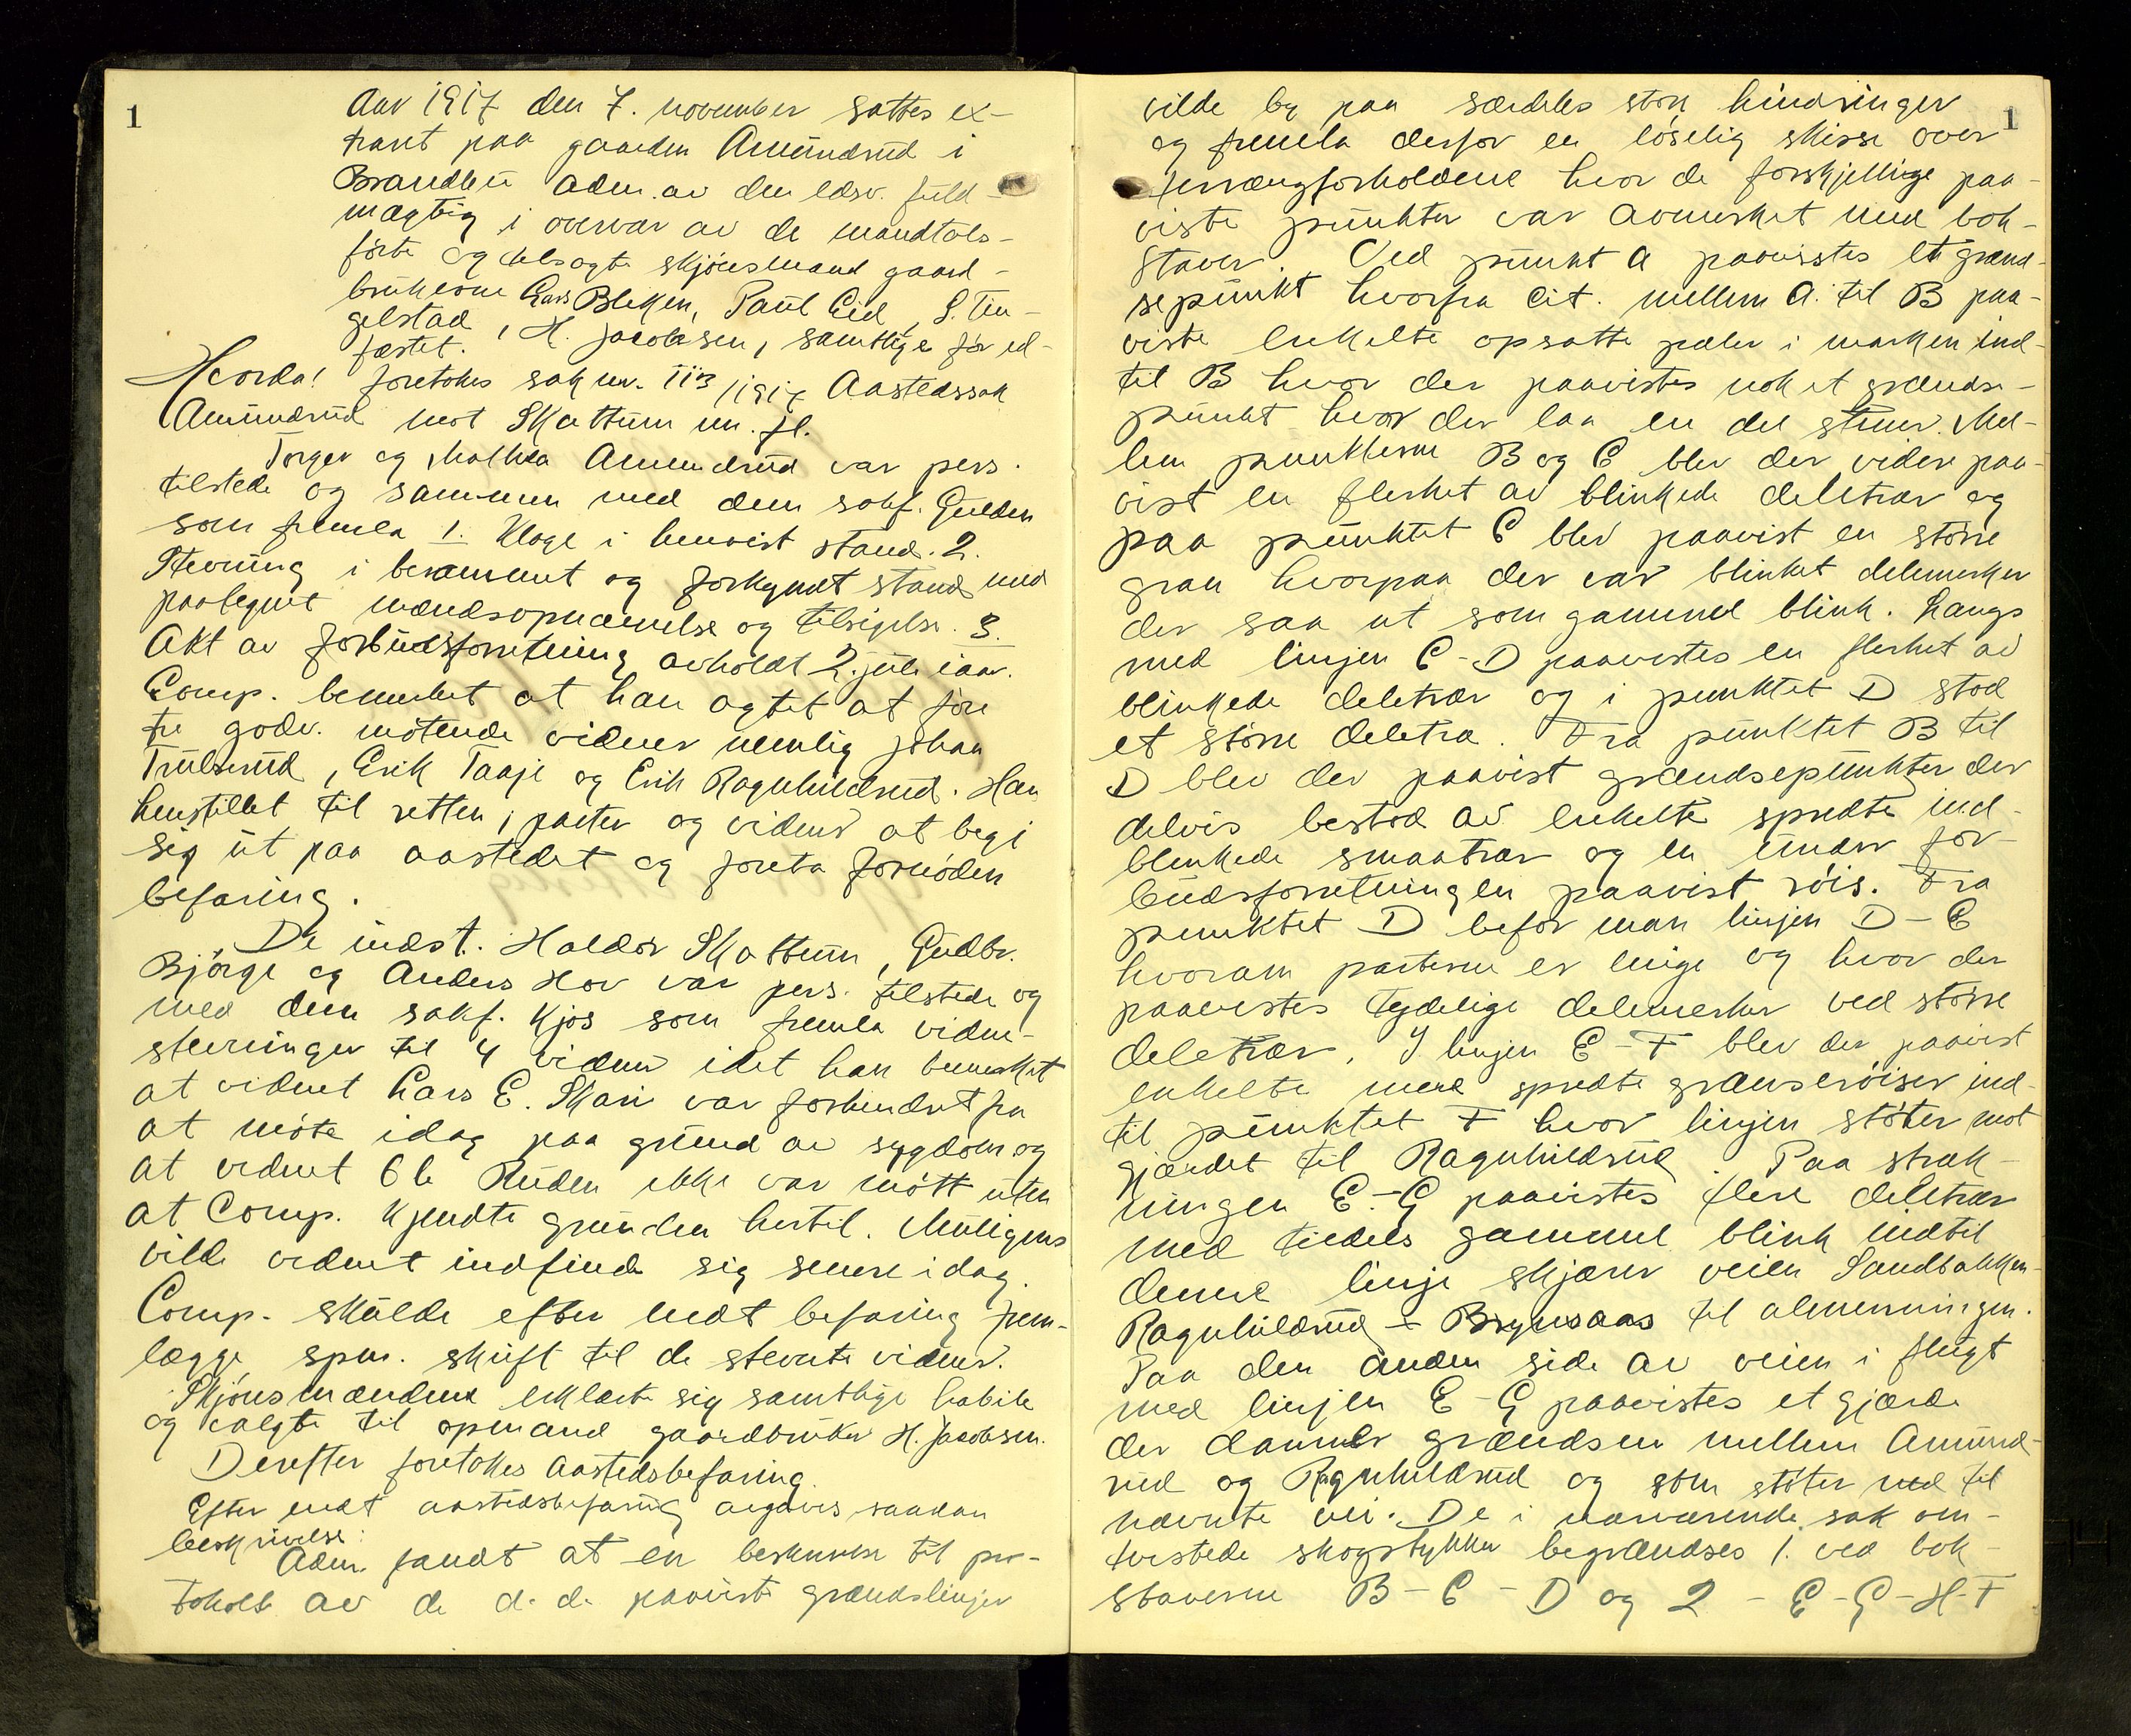 1
Aar 1917 den 7. november sattes ex-
traret paa gaarden Amundrud i
Brandbu adm. av den edsv. fuld-
mægtig i overvær av de mandtals-
førte og tilsagte skjønsmænd gaard-
brukerne Lars Bleken, Paul Eid, S. Tin-
gelstad, H. Jacobsen, samtlige før ed-
fæstet.
Hvorda! foretokes sak nr. 113/1917 Aastedssak
Amundrud mot Skattum m. fl.
Torger og Mathea Amundrud var pers.
tilstede og sammen med dem sakf. Gulden
som fremla 1. Klage i henvist stand. 2.
Stevning i berammet og forkyndt stand med
paategnet mændsopnævnelse og tilsigelse. 3.
Akt av forbudsforretning avholdt 2. juli iaar.
Comp. bemerket at han agtet at føre
tre godv. møtende vidner nemlig Johan
Trulserud, Erik Taaje og Erik Ragnhildrud. Han
henstillet til retten, parter og vidner at begi
sig ut paa aastedet og foreta fornøden
befaring.
De indst. Haldor Skattum, Gudbr.
Bjørge og Anders Hov var pers. tilstede og
med dem sakf. Kjos som fremla vidne-
stevninger til 4 vidner idet han bemerket
at vidnet Lars E. Skari var forhindret fra
at møte idag paa grund av sygdom og
at vidnet Ole Ruden ikke var møtt uten
at Comp. kjendte grunden hertil. Muligens
vilde vidnet indfinde sig senere idag.
Comp. skulde efter endt befaring frem-
lægge spm. skrift til de stevnte vidner.
Skjønsmændene erklærte sig samtlige habile
og valgte til opmand gaardbruker H. Jacobsen.
Derefter foretokes aastedsbefaring.
Efter endt aastedsbefaring avgaves saadan
beskrivelse:
Adm. fandt at en beskrivelse til pro-
tokols av de d. d. paaviste grændselinjer
1
vilde by paa særdeles store hindringer
og fremla derfor en løselig skisse over
terrængforholdene hvor de forskjellige paa-
viste punkter var avmerket med bok-
staver. Ved punkt A paavistes et grænd-
sepunkt hvorfra cit. mellem A. til B paa-
viste enkelte opsatte pæler i marken ind-
til B hvor der paavistes nok et grændse-
punkt hvor der laa en del stener. Mel-
lem punkterne B og C blev der videre paa-
vist en flerhet av blinkede deletrær og
paa punktet C blev paavist en større
gran hvorpaa der var blinket delemerker
der saa ut som gammel blink. Langs
med linjen C-D paavistes en flerhet av
blinkede deletrær og i punktet D stod
et større deletræ. Fra punktet B til
D blev der paavist grændsepunkter der
delvis bestod av enkelte spredte ind-
blinkede smaatrær og en under for-
budsforretningen paavist røis. Fra
punktet D befor man linjen D-E
hvorom parterne er enige og hvor der
paavistes tydelige delemerker ved større
deletrær. I linjen E-F blev der paavist
enkelte mere spredte grænserøiser ind-
til punktet F hvor linjen støter mot
gjærdet til Ragnhildrud. Paa stræk-
ningen E-G paavistes flere deletrær
med tildels gammel blink indtil
denne linje skjærer veien Sandbakken-
Ragnhildrud - Brynsaas til almenningen.
Paa den anden side av veien i flugt
med linjen E-G paavistes et gjærde
der danner grændsen mellem Amund-
rud og Ragnhildrud og som støter ned til
nævnte vei. De i nærværende sak om-
tvistede skogstykker begrændses 1. ved bok-
staverne B-C-D og 2 - E-G-H-F